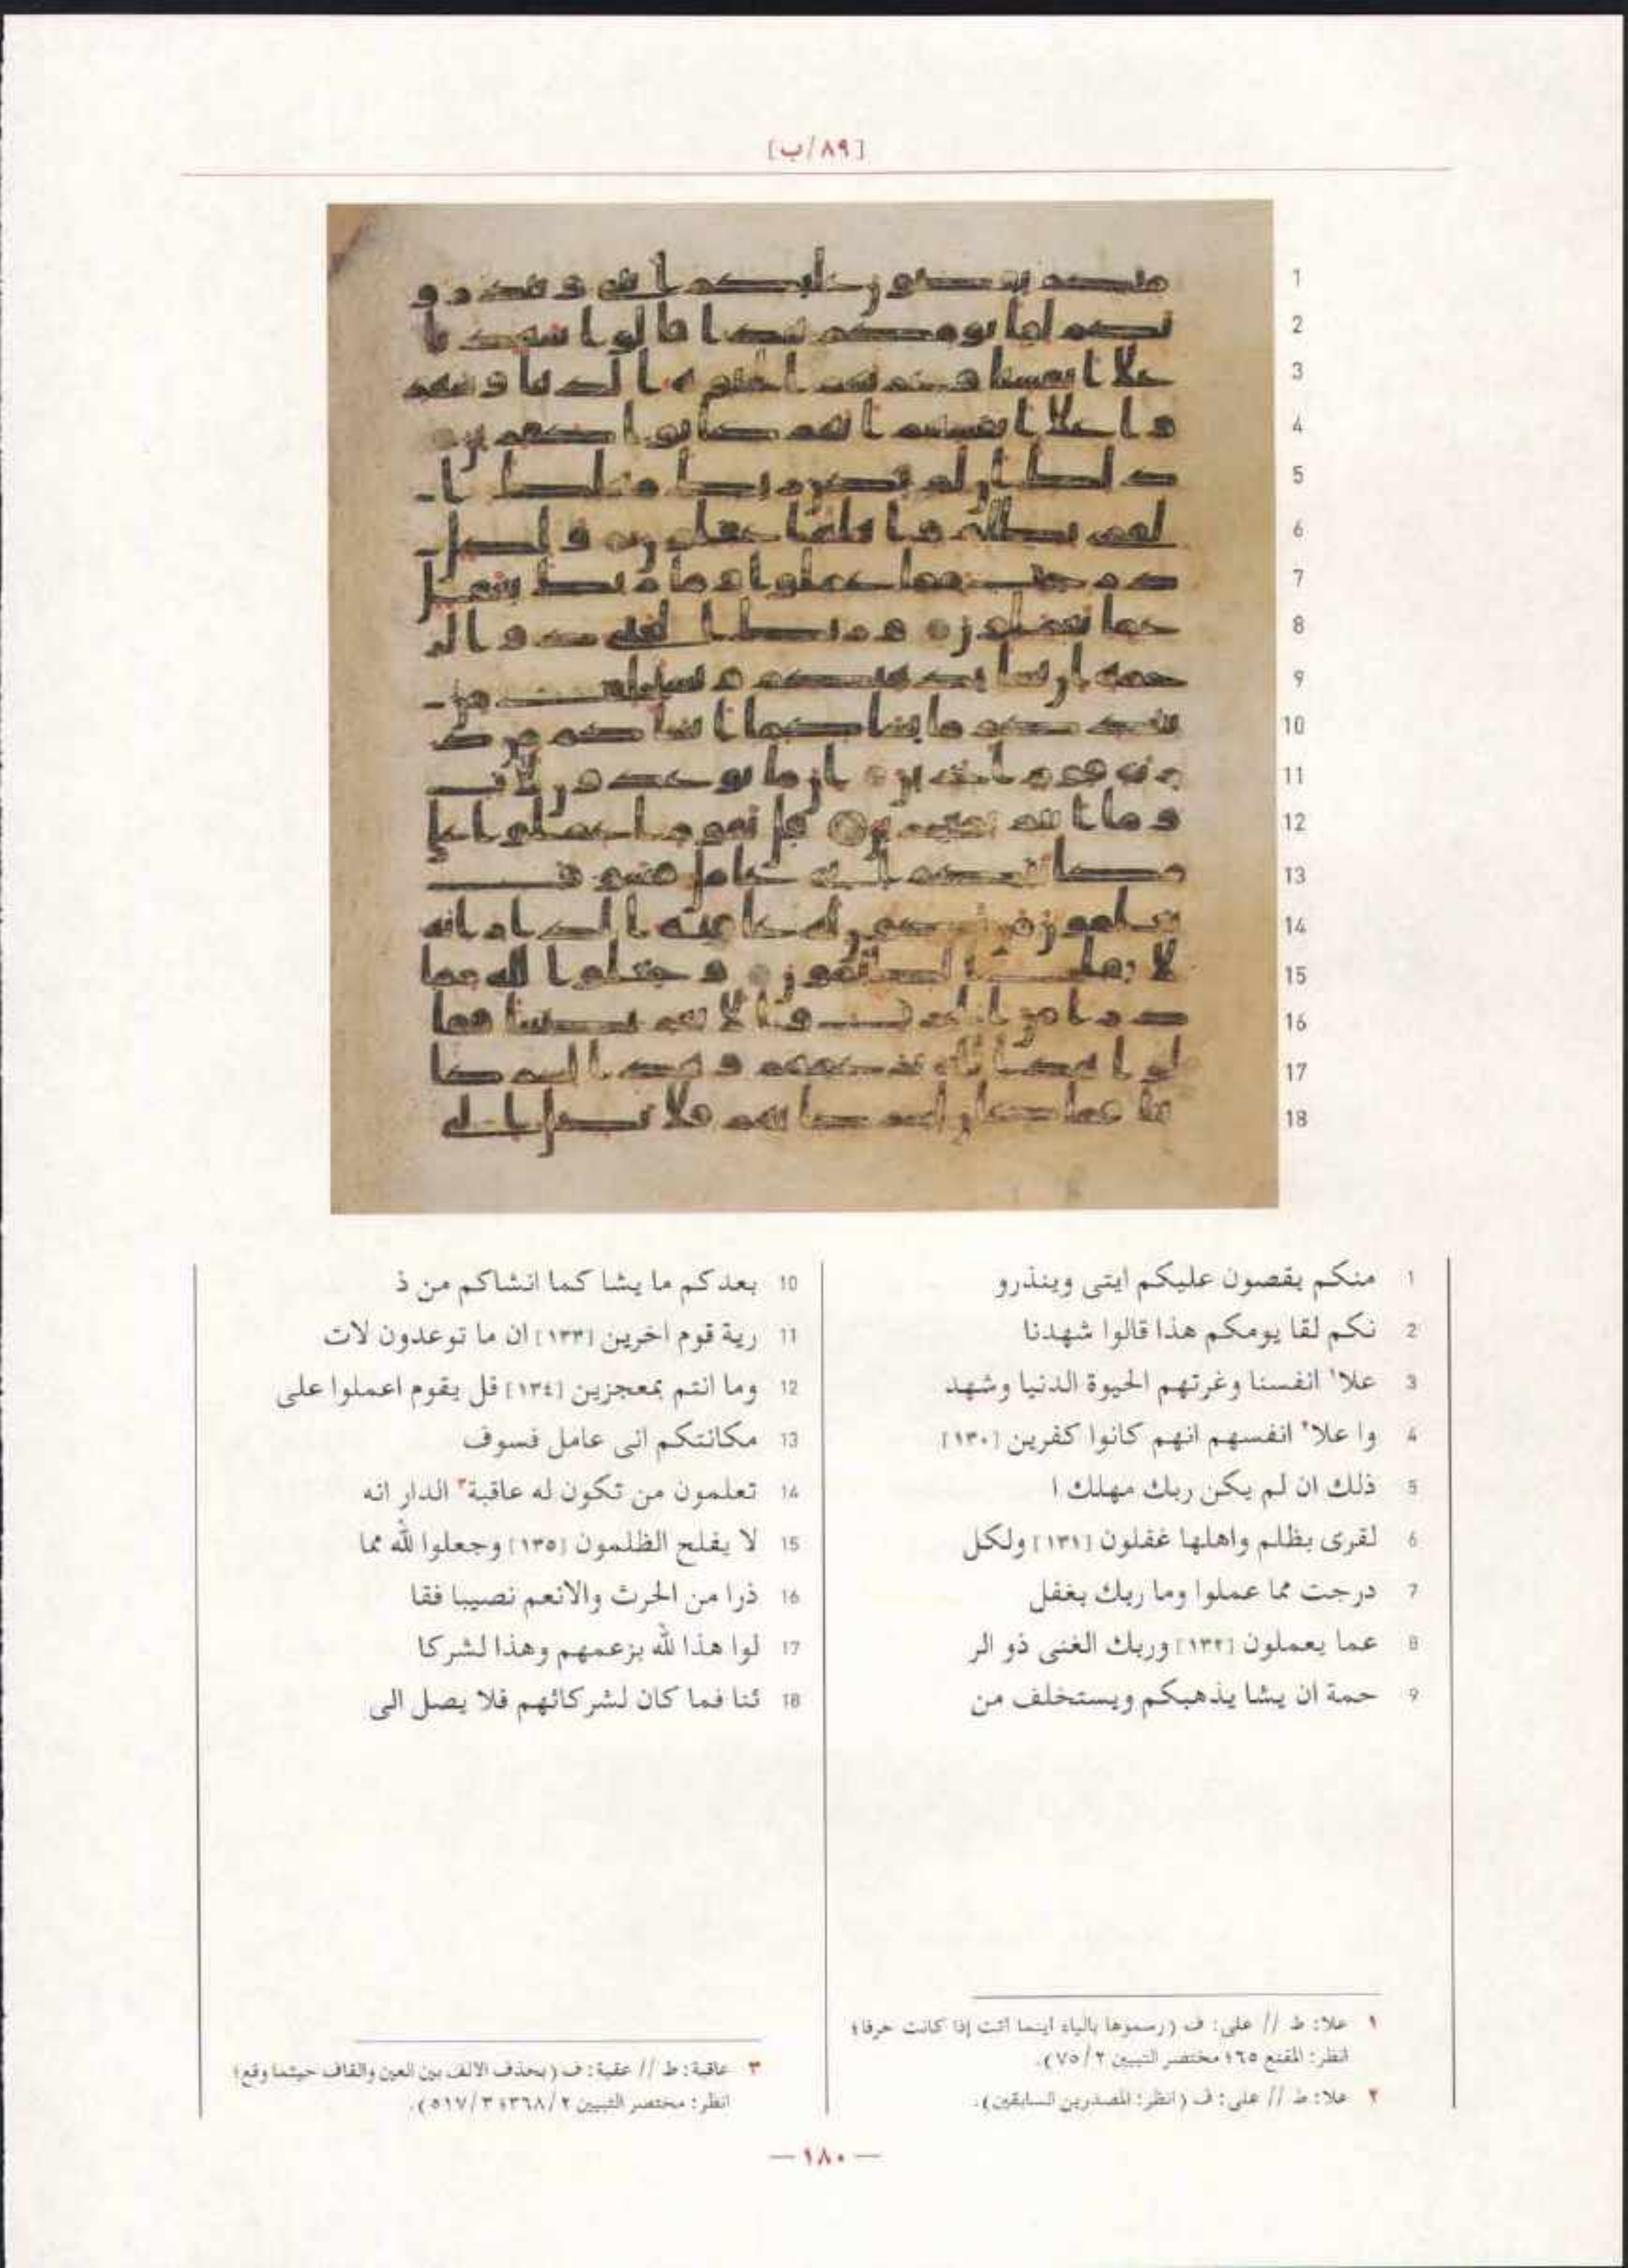 [٨٩/ب]
1 منكم يقصون عليكم ايتى وينذرو
2 نكم لقا يومكم هذا قالوا شهدنا
3 علا١ انفسنا وغرتهم الحيوة الدنيا وشهد
4 وا علا٢ انفسهم انهم كانوا كفرين [١٣٠]
5 ذلك ان لم يكن ربك مهلك ا
6 لقرى بظلم واهلها غفلون [١٣١] ولكل
7 درجت مما عملوا وما ربك بغفل
8 عما يعملون [١٣٢] وربك الغنى ذو الر
9 حمة ان يشا يذهبكم ويستخلف من
10 بعدكم ما يشا كما انشاكم من ذ
11 رية قوم اخرين [١٣٣] ان ما توعدون لات
12 وما انتم بمعجزين [١٣٤] قل يقوم اعملوا على
13 مكانتكم انى عامل فسوف
14 تعلمون من تكون له عاقبة٣ الدار انه
15 لا يفلح الظلمون [١٣٥] وجعلوا لله مما
16 ذرا من الحرث والانعم نصيبا فقا
17 لوا هذا لله بزعمهم وهذا لشركا
18 ئنا فما كان لشركائهم فلا يصل الى
١ علا: ط // على: ف (رسموها بالياء اينما اتت إذا كانت حرفا؛
انظر: المقنع ٦٥؛ مختصر التبيين ٧٥/٢).
٢ علا: ط // على: ف (انظر: المصدرين السابقين).
٣ عاقبة: ط // عقبة: ف (بحذف الالف بين العين والقاف حيثما وقع؛
انظر: مختصر التبيين ٣٦٨/٢؛ ٥١٧/٣).
— ١٨٠ —